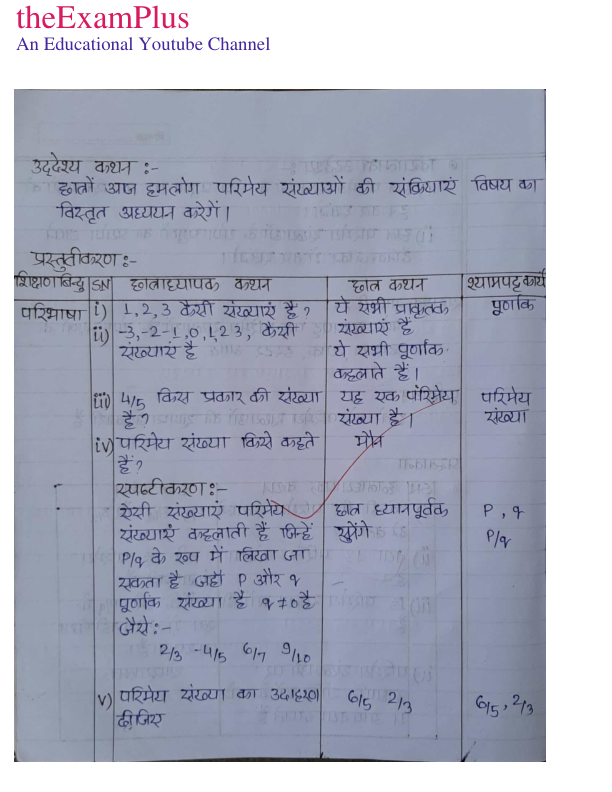 theExamPlus
An Educational Youtube Channel
उद्देश्य कथन :-
छात्रों आज हमलोग परिमेय संख्याओं की संक्रियाएं विषय का
विस्तृत अध्ययन करेगें।
प्रस्तुतीकरण :-
शिक्षण बिन्दु S.N छात्राध्यापक कथन छात्र कथन श्यामपट्ट कार्य
परिभाषा i) 1, 2, 3 कैसी संख्याएं है? ये सभी प्राकृतक पूर्णाक
ii) -3, -2 -1, 0, 1, 2 3, कैसी संख्याएं है
संख्याएं है ये सभी पूर्णाक
कहलाते हैं।
iii) 4/5 किस प्रकार की संख्या यह एक परिमेय परिमेय
है? संख्या है। संख्या
iv) परिमेय संख्या किसे कहते मौन
हैं?
स्पष्टीकरण :-
ऐसी संख्याएं परिमेय छात्र ध्यानपूर्वक P, q
संख्याएं कहलाती हैं जिन्हें सुनेंगे P/q
P/q के रूप में लिखा जा
सकता है जहाँ P और q
पूर्णाक संख्या है q ≠ 0 है
जैसे :-
2/3 -4/5 6/7 9/10
v) परिमेय संख्या का उदाहरण 6/5 2/3 6/5, 2/3
दीजिए